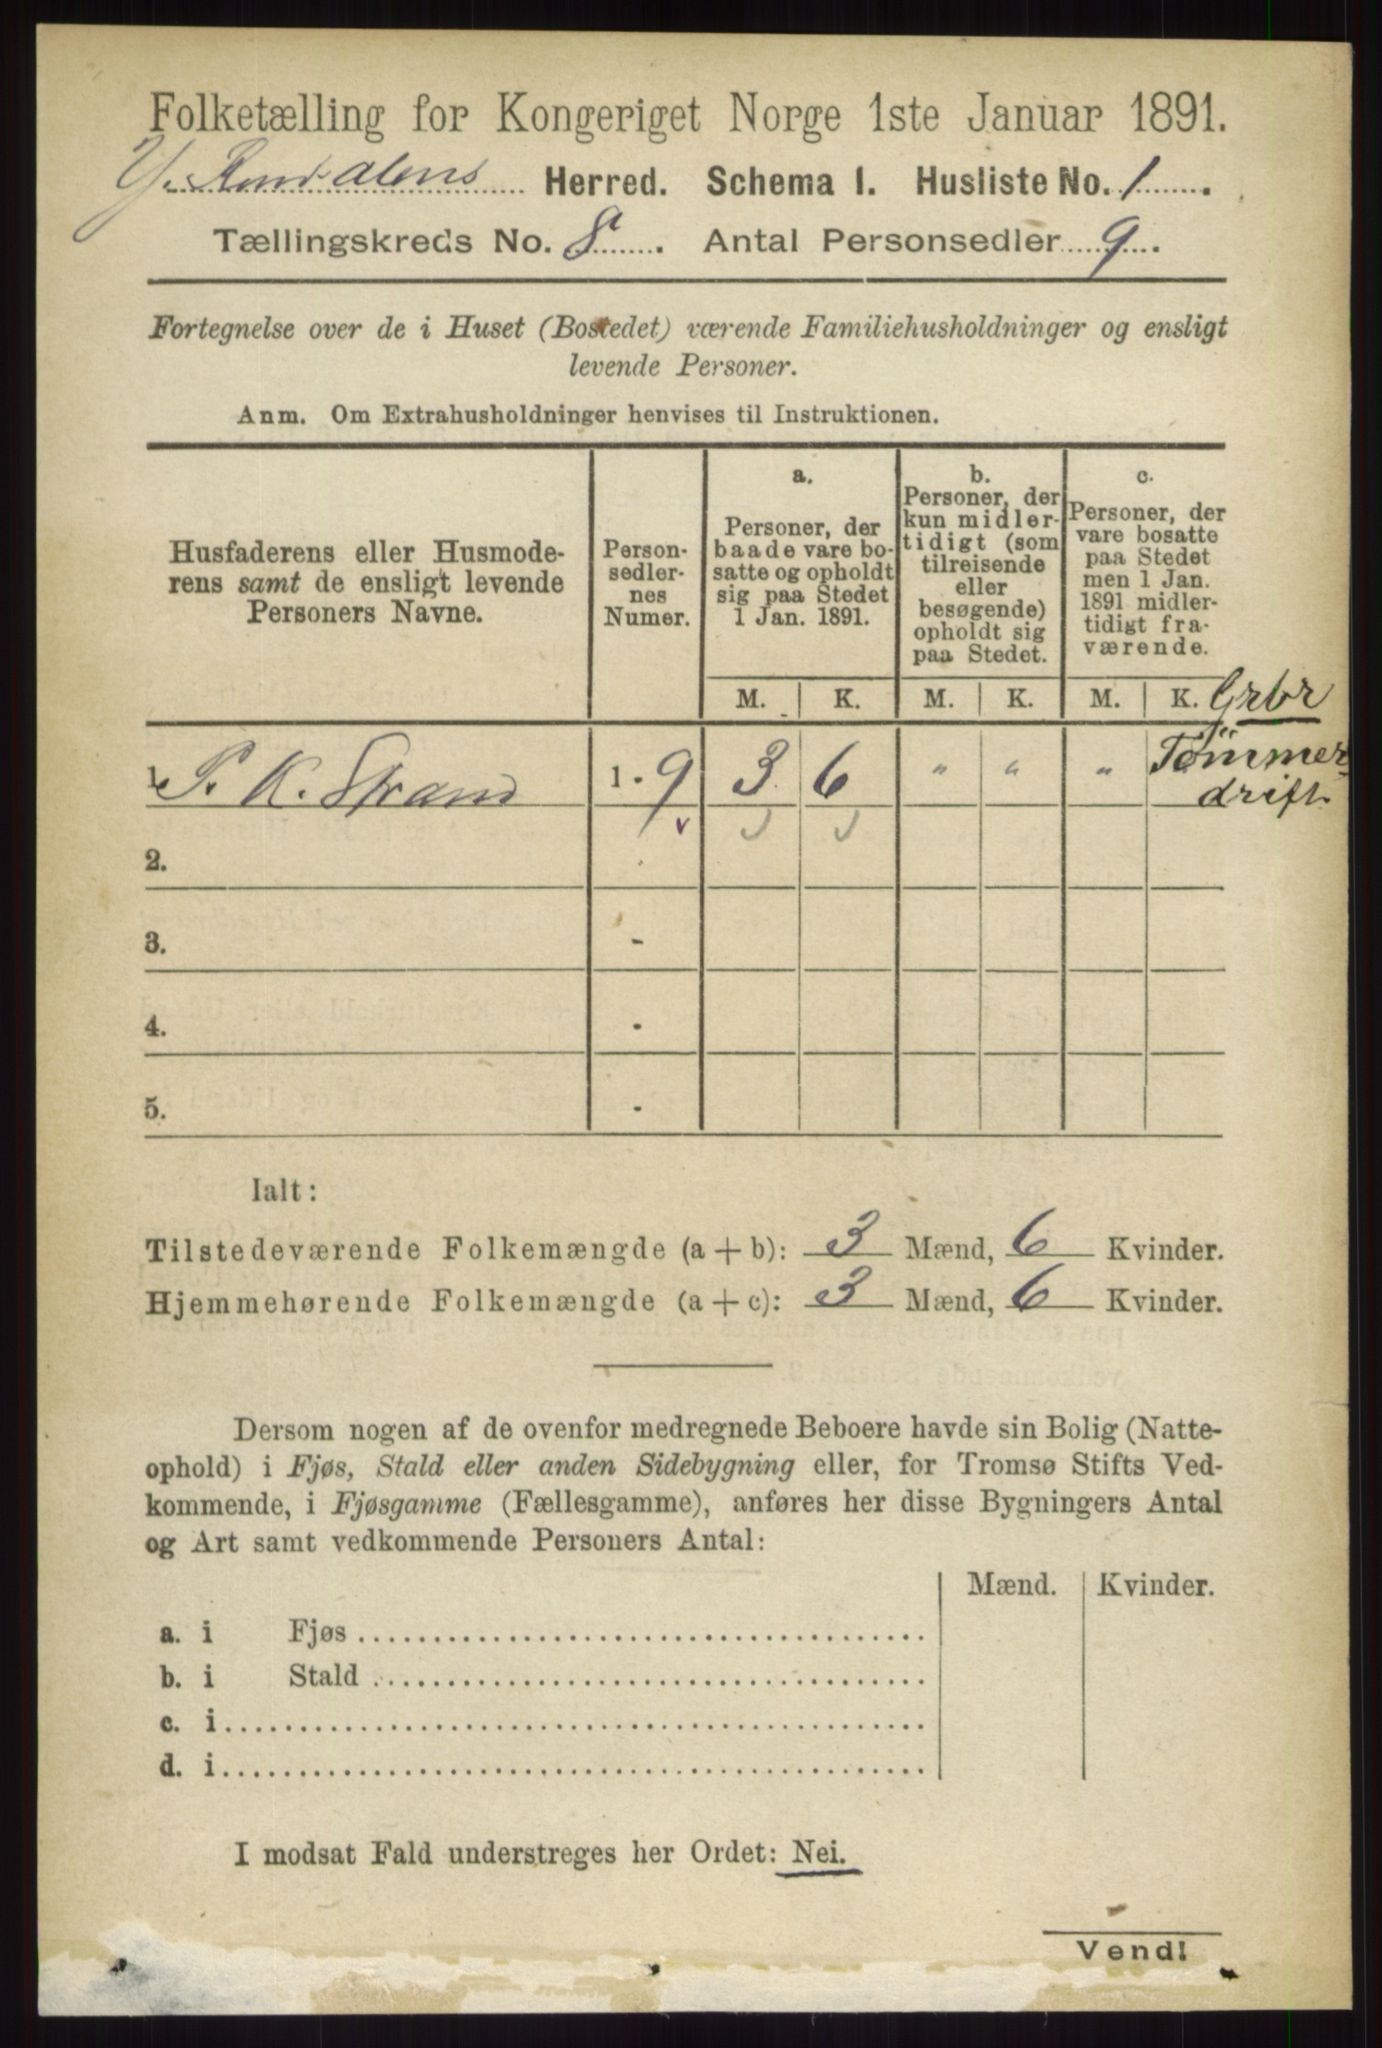 Folketælling for Kongeriget Norge 1ste Januar 1891.
Y. Rendalens Herred. Schema 1. Husliste No. 1.
Tællingskreds No. 8. Antal Personsedler 9.
Fortegnelse over de i Huset (Bostedet) værende Familiehusholdninger og ensligt
levende Personer.
Anm. Om Extrahusholdninger henvises til Instruktionen.
Husfaderens eller Husmode-
rens samt de ensligt levende
Personers Navne.
Person-
sedler-
nes
Numer.
a.
Personer, der
baade vare bo-
satte og opholdt
sig paa Stedet
1 Jan. 1891.
b.
Personer, der
kun midler-
tidigt (som
tilreisende
eller
besøgende)
opholdt sig
paa Stedet.
c.
Personer, der
vare bosatte
paa Stedet
men 1 Jan.
1891 midler-
tidigt fra-
værende.
M. K. M. K. M. K. Grbr
1. P. K. Strand 1 - 9 3 6 " " " Tømmer-
drift.
2.
3. -
4. -
5. -
Ialt:
Tilstedeværende Folkemængde (a + b): 3 Mænd, 6 Kvinder.
Hjemmehørende Folkemængde (a + c): 3 Mænd, 6 Kvinder.
Dersom nogen af de ovenfor medregnede Beboere havde sin Bolig (Natte-
ophold) i Fjøs, Stald eller anden Sidebygning eller, for Tromsø Stifts Ved-
kommende, i Fjøsgamme (Fællesgamme), anføres her disse Bygningers Antal
og Art samt vedkommende Personers Antal:
Mænd. Kvinder.
a. i Fjøs
b. i Stald
c. i
d. i
I modsat Fald understreges her Ordet: Nei.
Vend!